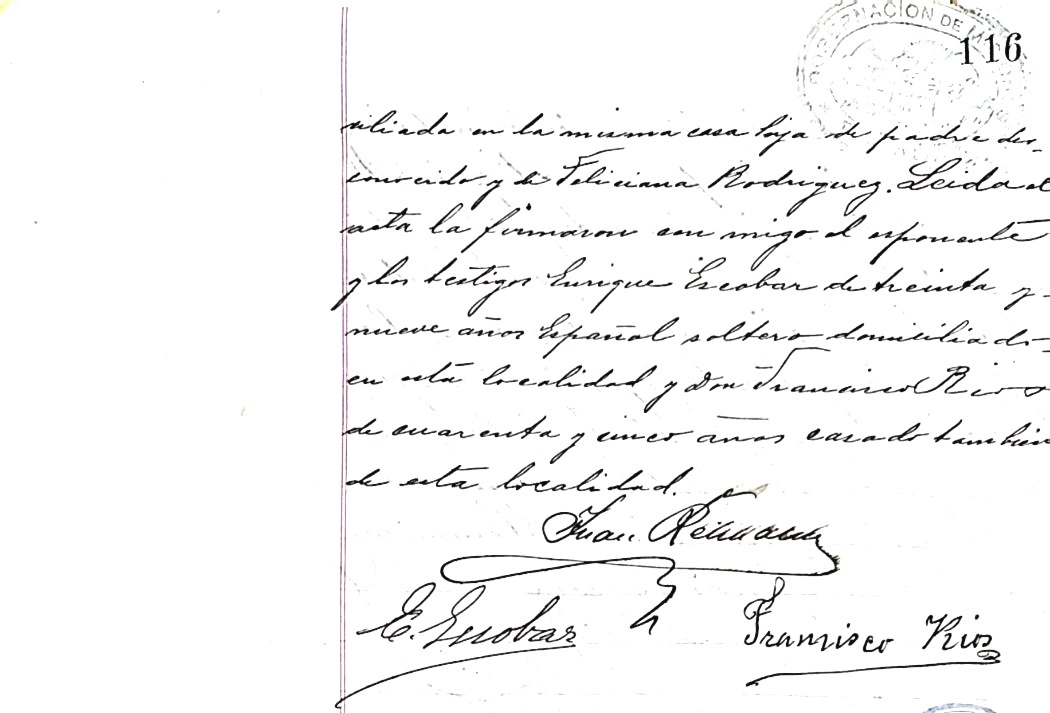 GOBERNACION DE
116
ciliada en la misma casa hija de padre des-
conocido y de Feliciana Rodriguez. Leida el
acta la firmaron con migo el esponente
y los testigos Enrique Escobar de treinta y
nueve años Español soltero domiciliado
en esta localidad y Don Francisco Rios
de cuarenta y cinco años casado tambien
de esta localidad.
Juan
E. Escobar
Francisco Rios